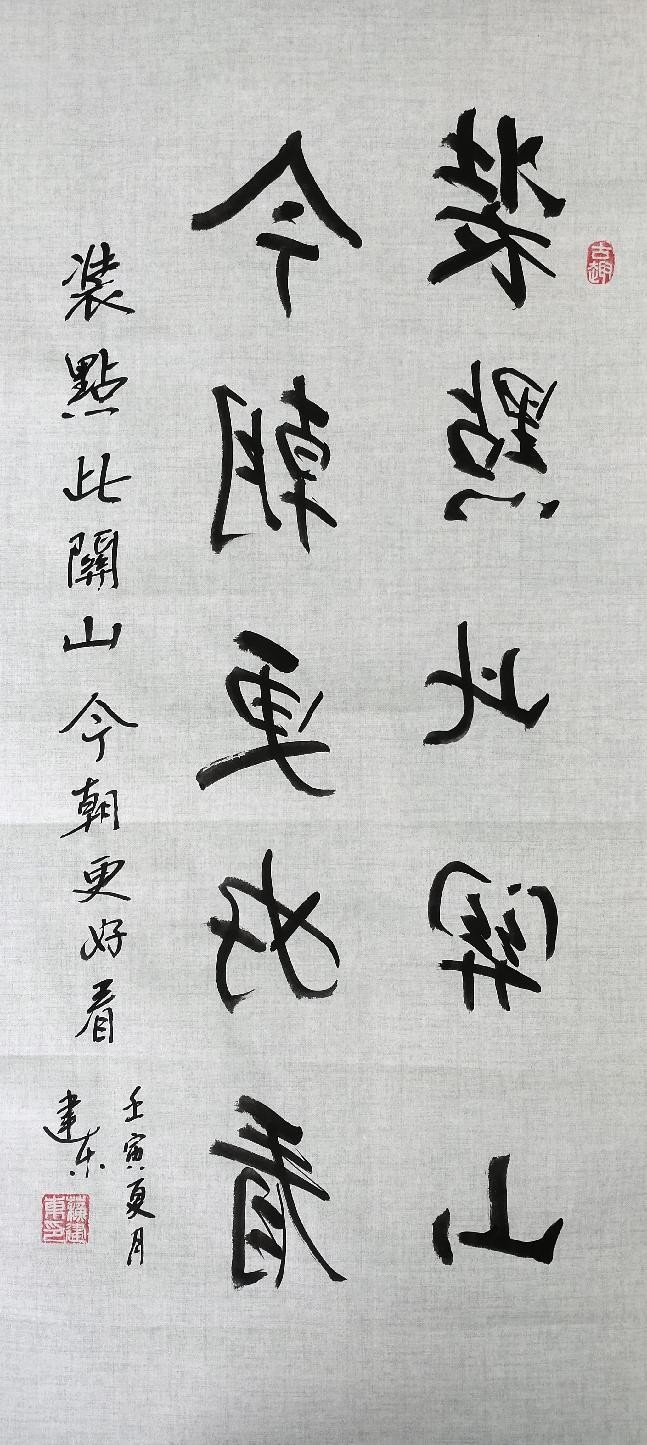 古趣
裝點此關山
今朝更好看
裝點此關山今朝更好看
壬寅夏月
建東